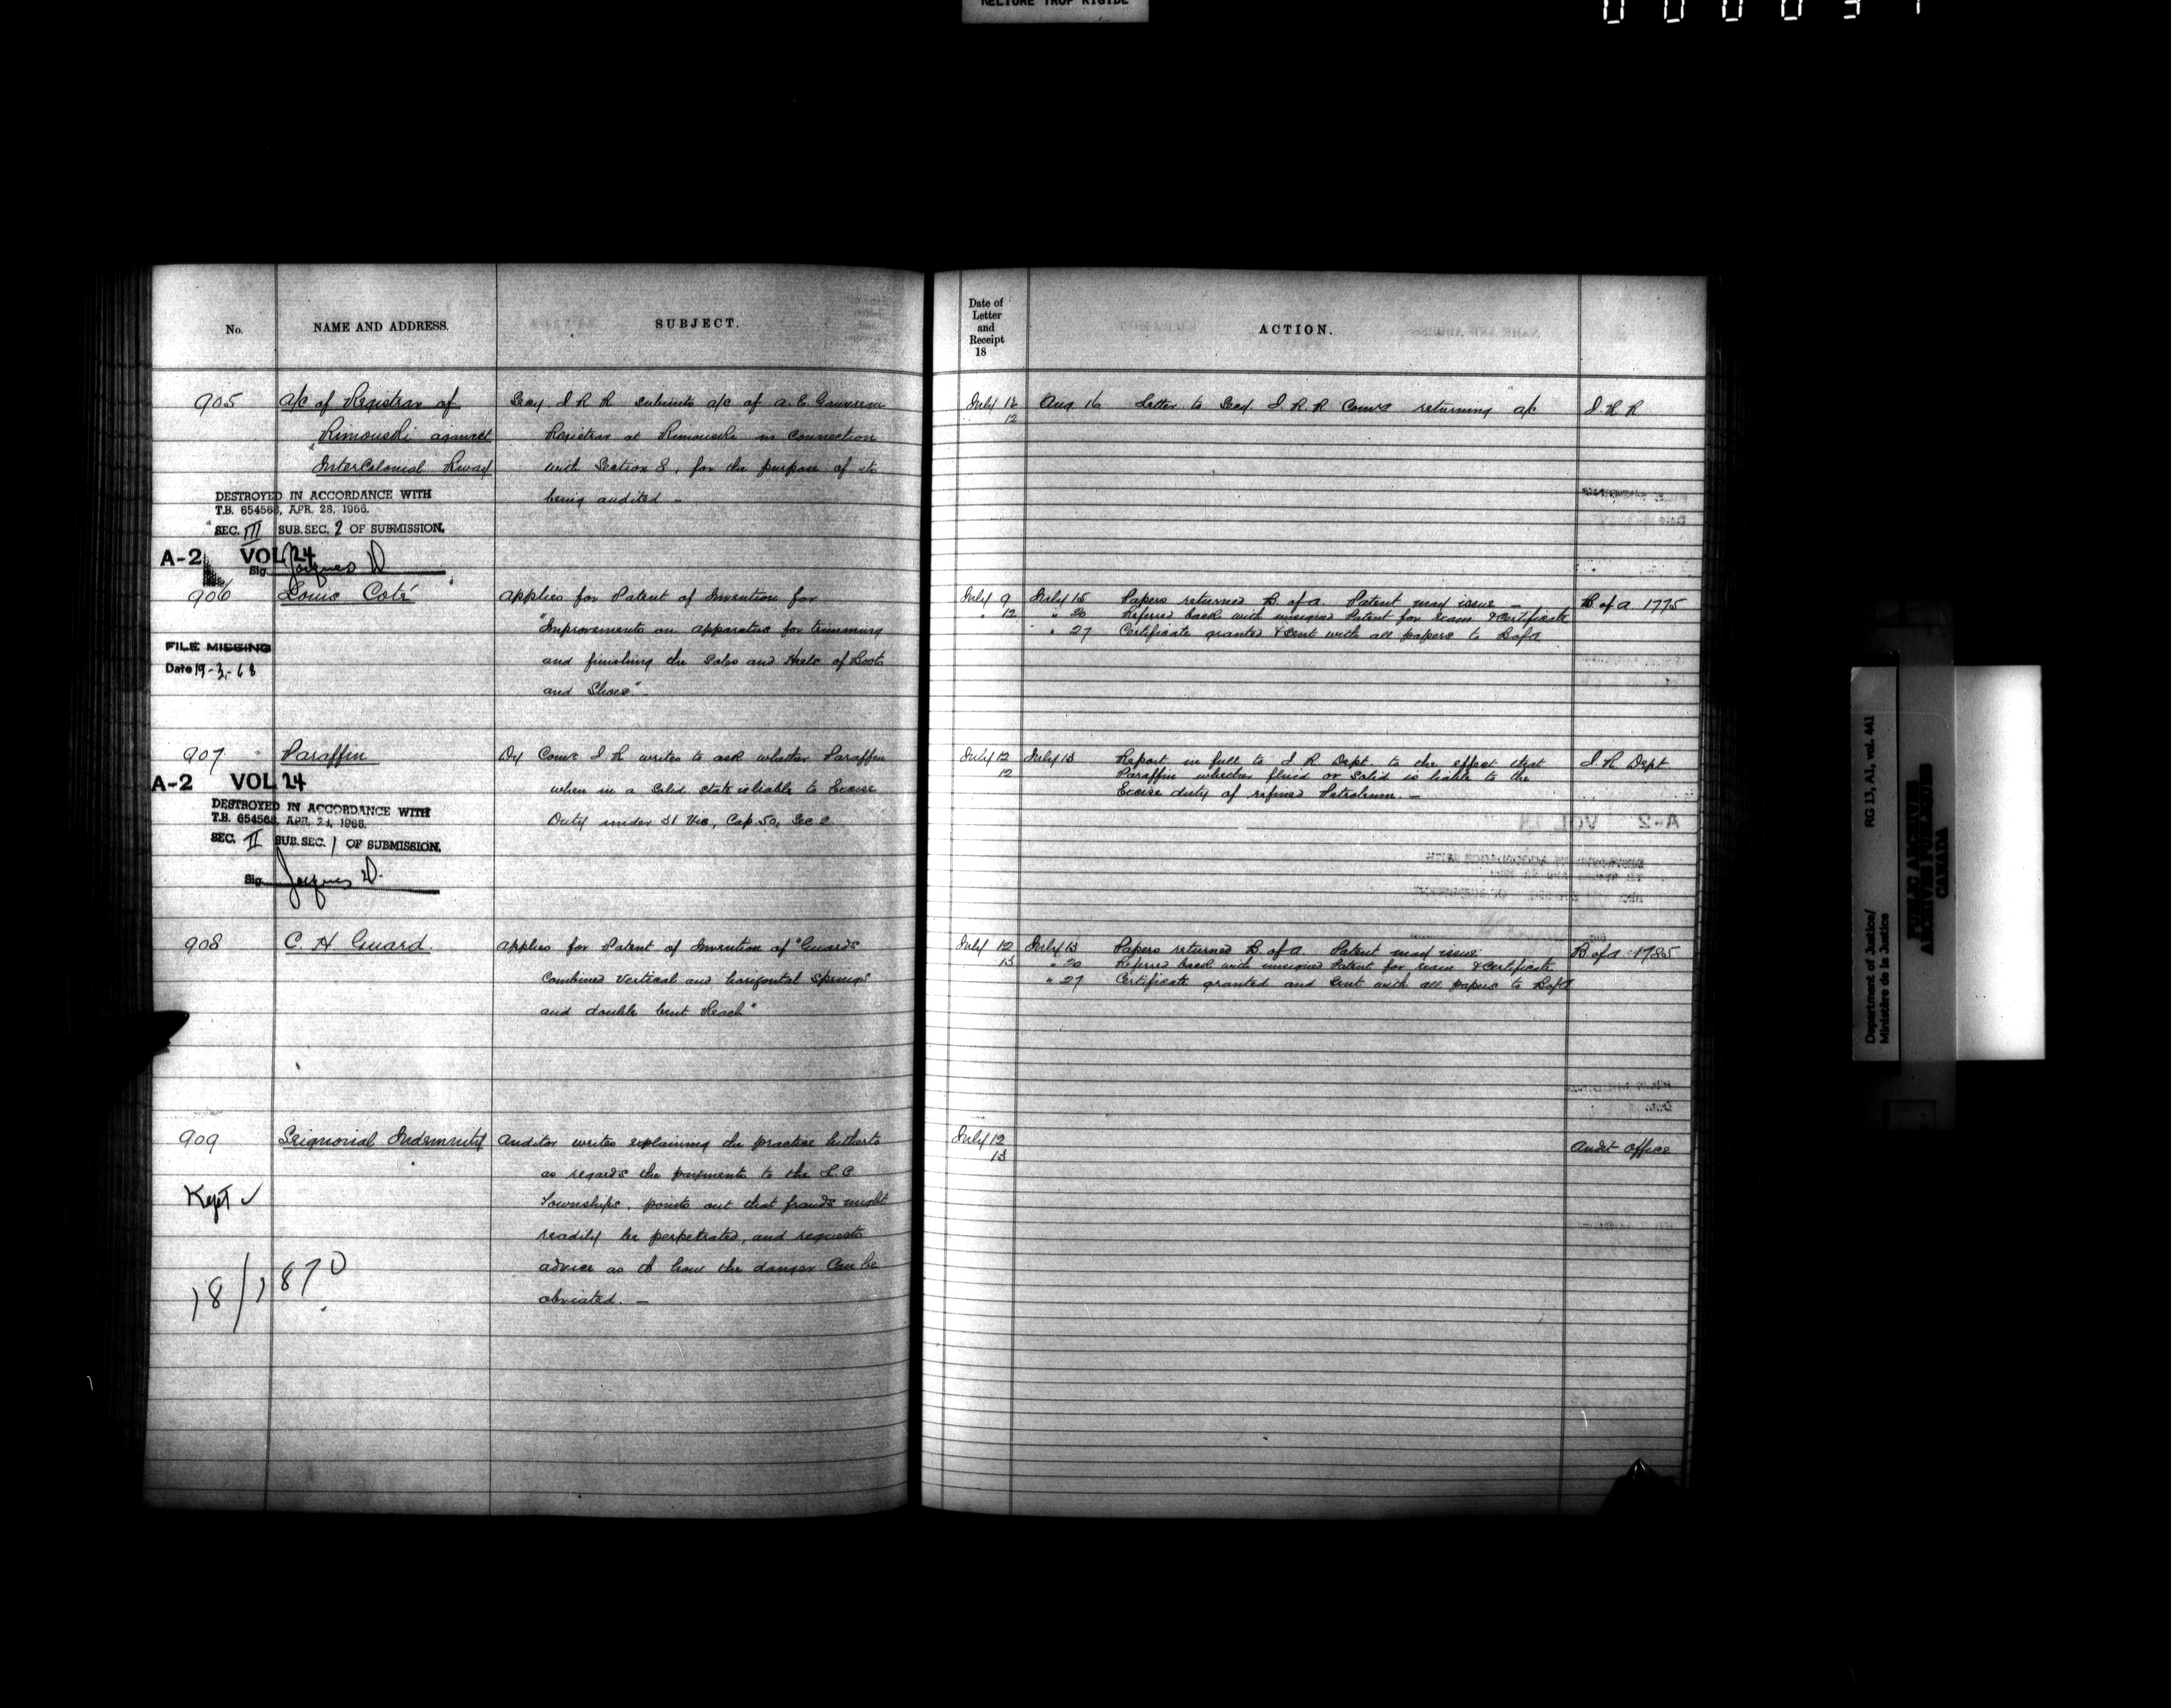 RELIURE TROP RIGIDE
No.
NAME AND ADDRESS.
SUBJECT.
905
a/c of Registrar of
Rimouski against
InterColonial Rway
Secy I R R submits a/c of A. E. Gauvreau
Registrar at Rimouski in connection
with Section 8, for the purpose of its
being audited —
DESTROYED IN ACCORDANCE WITH
T.B. 654568, APR. 28, 1966.
SEC. III SUB. SEC. 2 OF SUBMISSION.
A-2 VOL 24
Sig. Jacques D
906
Louis Coté
applies for Patent of Invention for
"Improvements on apparatus for trimming
and finishing the Soles and Heels of Boots
and Shoes" —
FILE MISSING
Date 19-3-68
907
Paraffin
Dy Comr I R writes to ask whether Paraffin
when in a solid state is liable to Excise
Duty under 31 Vic, Cap 50, Sec 2
A-2 VOL 24
DESTROYED IN ACCORDANCE WITH
T.B. 654568, APR. 21, 1966.
SEC. II SUB. SEC. 1 OF SUBMISSION.
Sig. Jacques D.
908
C. H Guard.
applies for Patent of Invention of "Guards
Combined Vertical and horizontal Springs
and double bent Reach"
909
Seignorial Indemnity
Auditor writes explaining the practice hitherto
as regards the payments to the L. C.
Townships, points out that frauds might
readily be perpetrated, and requests
advice as to how the danger can be
obviated. —
Kept ✓
18/1870
Date of
Letter
and
Receipt
18
ACTION.
July 12
12
Aug 16 Letter to Secy I. R. R Comrs returning a/c
I. R R
July 9
" 12
July 15 Papers returned B. of A. Patent may issue —
" 20 Referred back with unsigned Patent for exam & certificate
" 27 Certificate granted & sent with all papers to B of A
B. of A 1775
July 12
12
July 13 Report in full to I R Dept. to the effect that
Paraffin whether fluid or solid is liable to the
Excise duty of refined Petroleum. —
I. R. Dept
July 12
13
July 13 Papers returned B. of A. Patent may issue.
" 20 Referred back with unsigned Patent for exam & certificate
" 27 Certificate granted and sent with all papers to B of A
B of A 1785
July 12
13
Audit Office
Department of Justice/ RG 13, A1, vol. 441
Ministère de la Justice
PUBLIC ARCHIVES
ARCHIVES PUBLIQUES
CANADA